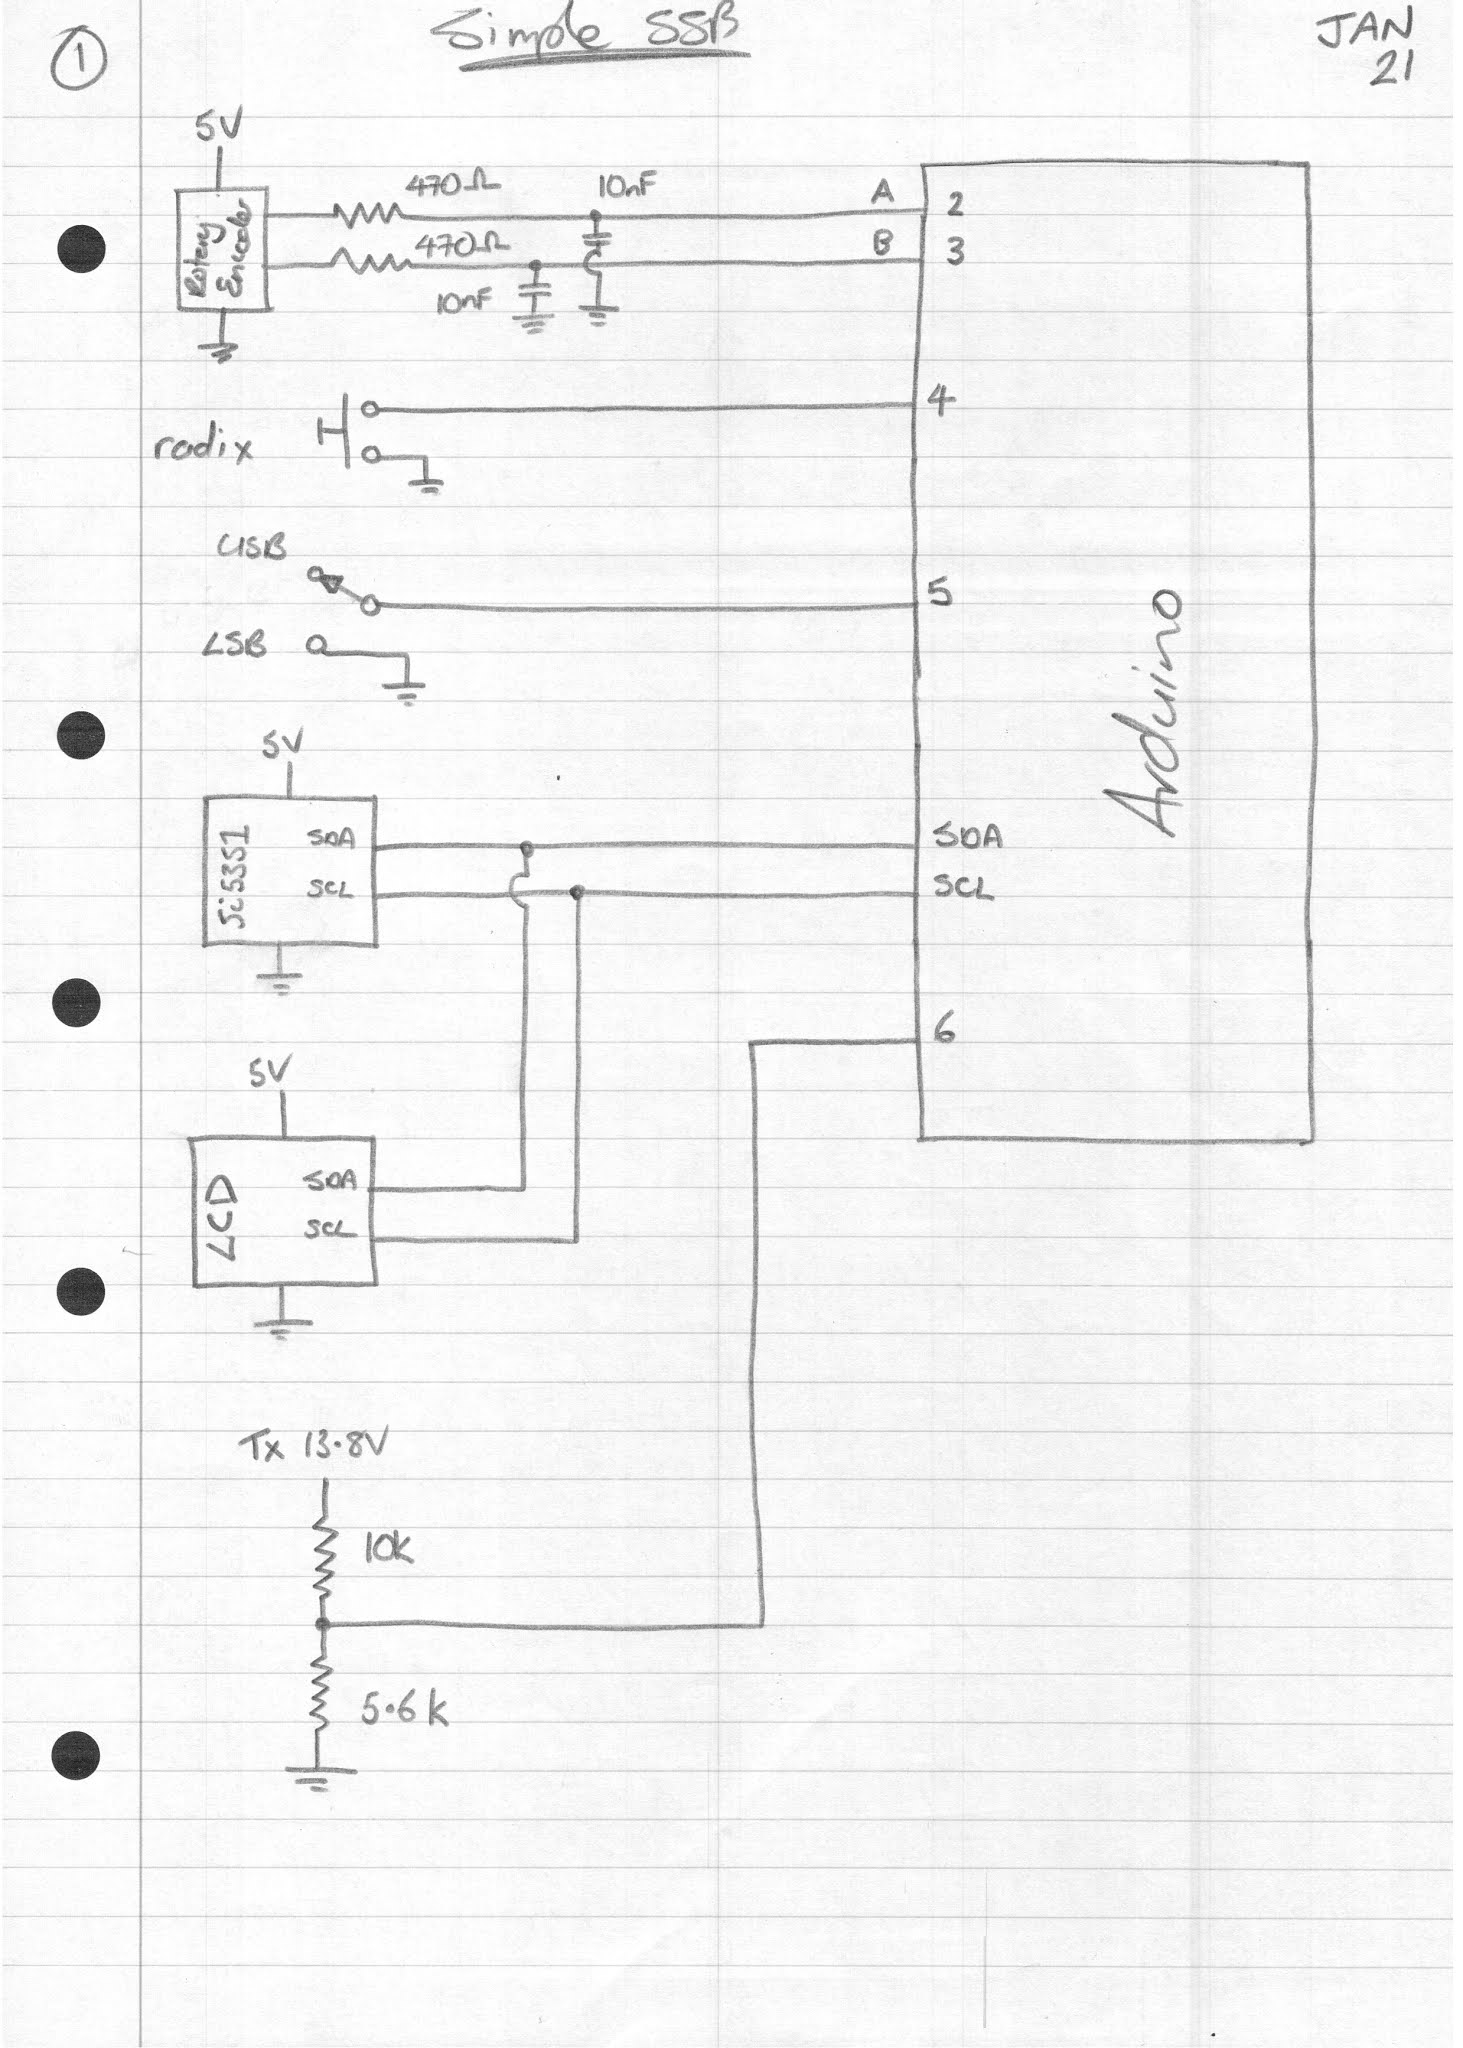 1
Simple SSB
JAN
21
5V
Rotary
Encoder
470Ω
10nF
470Ω
10nF
A
B
2
3
radix
4
USB
LSB
5
Arduino
5V
Si5351
SDA
SCL
SDA
SCL
6
5V
LCD
SDA
SCL
Tx 13.8V
10k
5.6k